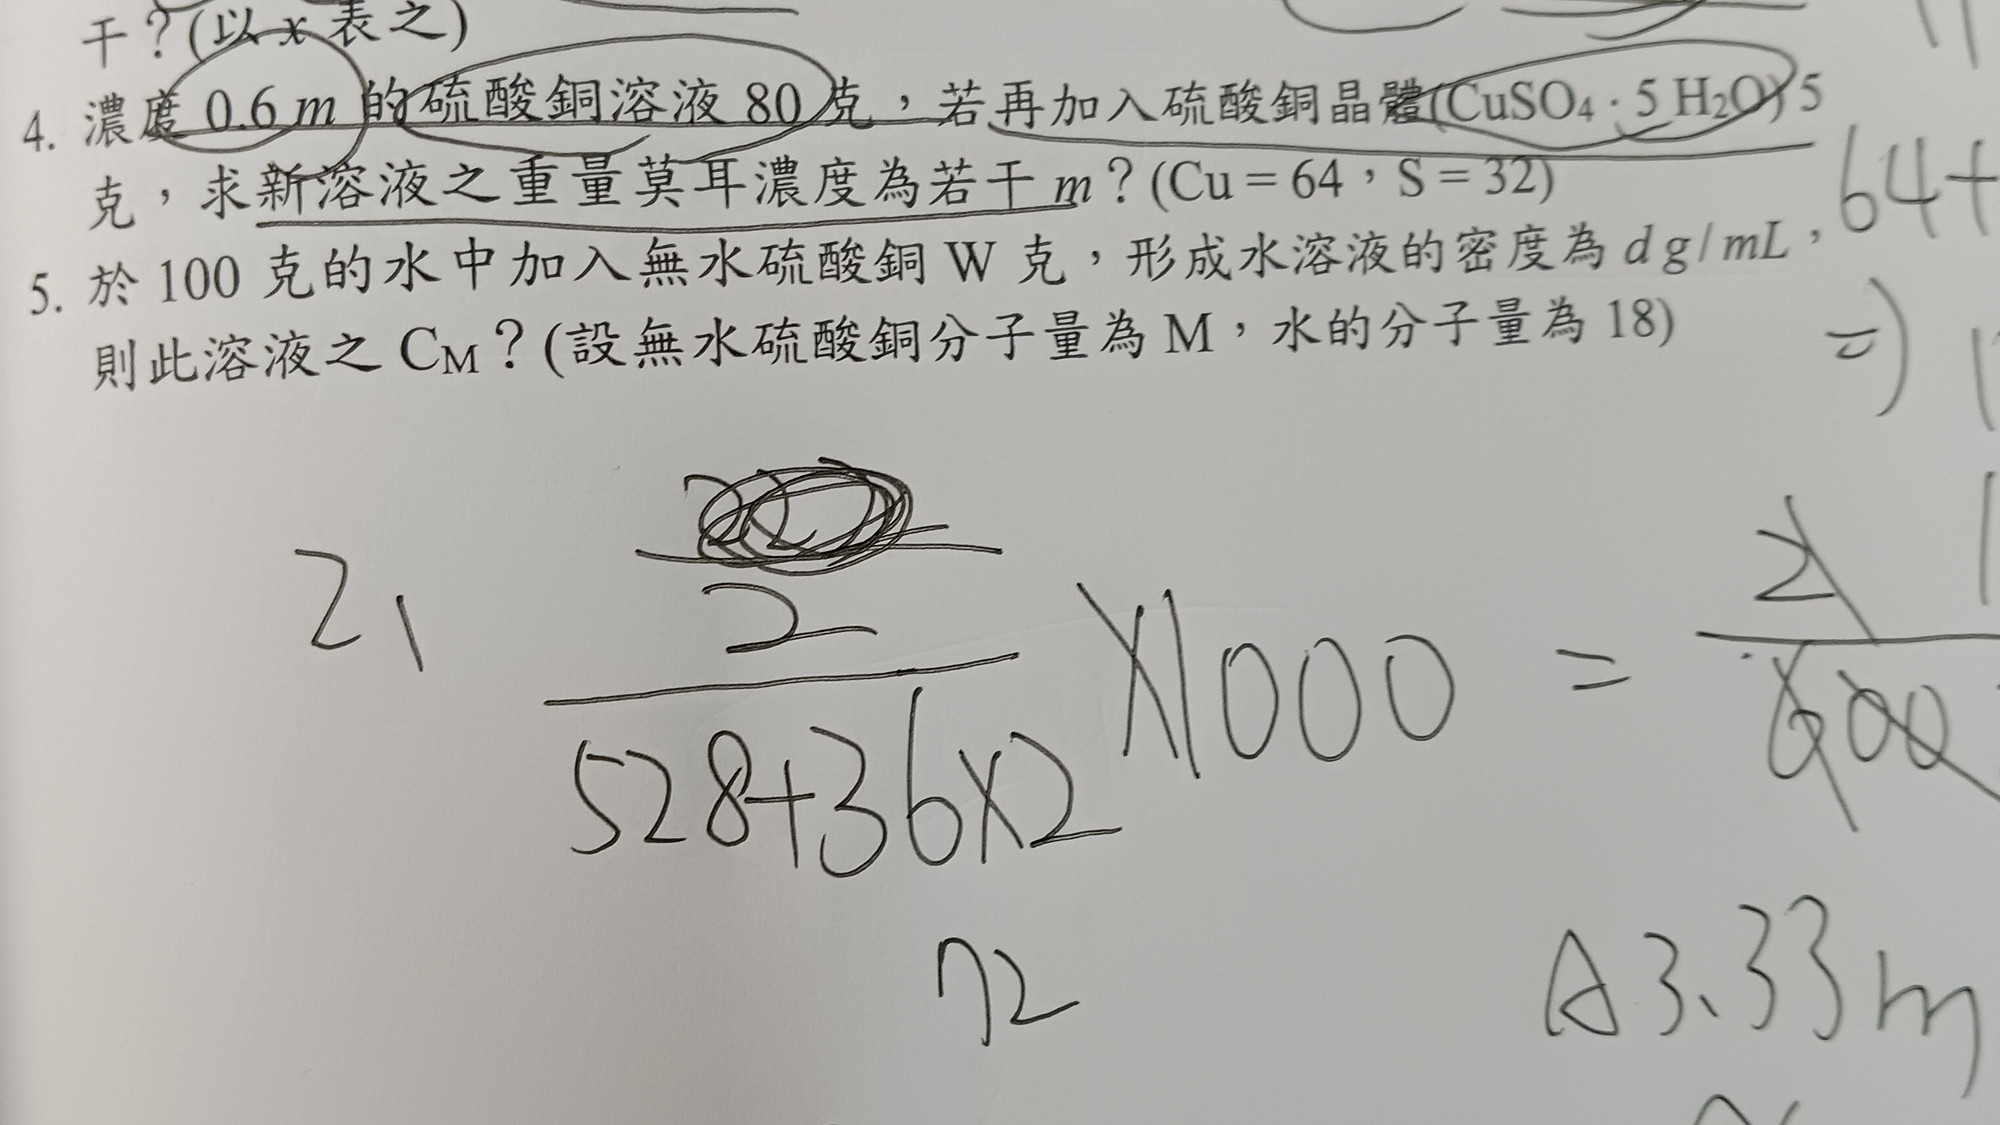 干？(以 x 表之)
4. 濃度 0.6 m 的硫酸銅溶液 80 克，若再加入硫酸銅晶體(CuSO₄·5 H₂O) 5
克，求新溶液之重量莫耳濃度為若干 m？(Cu = 64，S = 32)
64+
5. 於 100 克的水中加入無水硫酸銅 W 克，形成水溶液的密度為 d g/mL，
則此溶液之 C_M？(設無水硫酸銅分子量為 M，水的分子量為 18)
=) 1
2
2, ――― ×1000 = 2
528+36×2 600
72
A 3.33 m